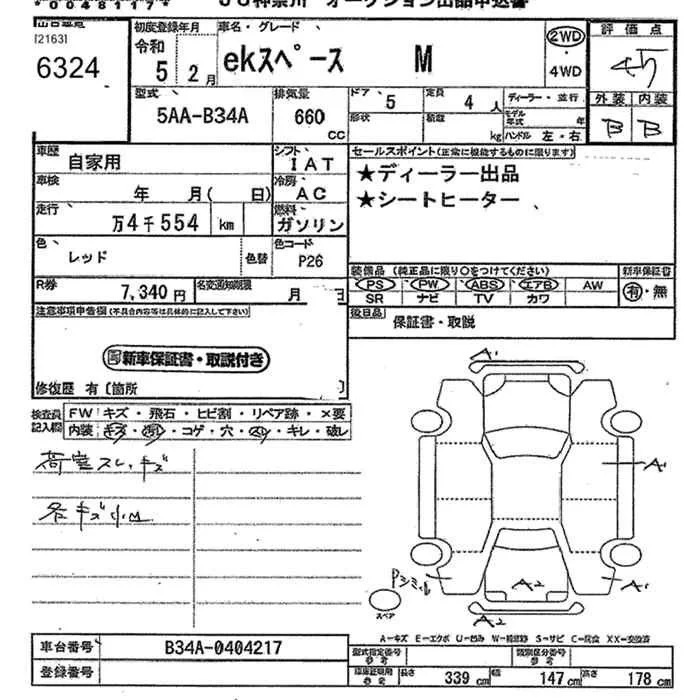 *00481117* JU神奈川 オークション出品申込書
出品番号
[2163]
6324
初度登録年月
令和
5 2月
車名・グレード
ekスペース M
2WD
・
4WD
評価点
4.5
外装 内装
B B
型式
5AA-B34A
排気量
660
CC
ドア 5
定員 4人
ディーラー・並行
形状
積載 kg
モデル年式 年
ハンドル 左・右
車歴
自家用
シフト
IAT
セールスポイント(正常に機能するものに限ります)
★ディーラー出品
★シートヒーター
車検
年 月( 日)
冷房
AC
走行
万4千554 km
燃料
ガソリン
色
レッド
色替
色コード
P26
装備品 (純正品に限り○をつけてください)
新車保証書
PS PW ABS エアB AW
有・無
SR ナビ TV カワ
R券
7,340円
名変通知期限
月 日
後日品
保証書・取説
注意事項申告欄(不具合内容等は具体的に記入して下さい)
新車保証書・取説付き
修復歴 有〔箇所
検査員記入欄
FW キズ・飛石・ヒビ割・リペア跡・×要
内装 キズ・汚れ・コゲ・穴・スレ・キレ・破レ
荷室スレ、キズ
各キズ小M
A1
A1
A1
A2
A2
Pシミル
スペア
A=キズ E=エクボ U=凹み W=補修跡 S=サビ C=腐食 XX=交換済
車台番号
B34A-0404217
登録番号
型式指定番号
参考
類別区分番号
参考
車庫証明用
参考
長さ 339 cm
幅 147 cm
高さ 178 cm